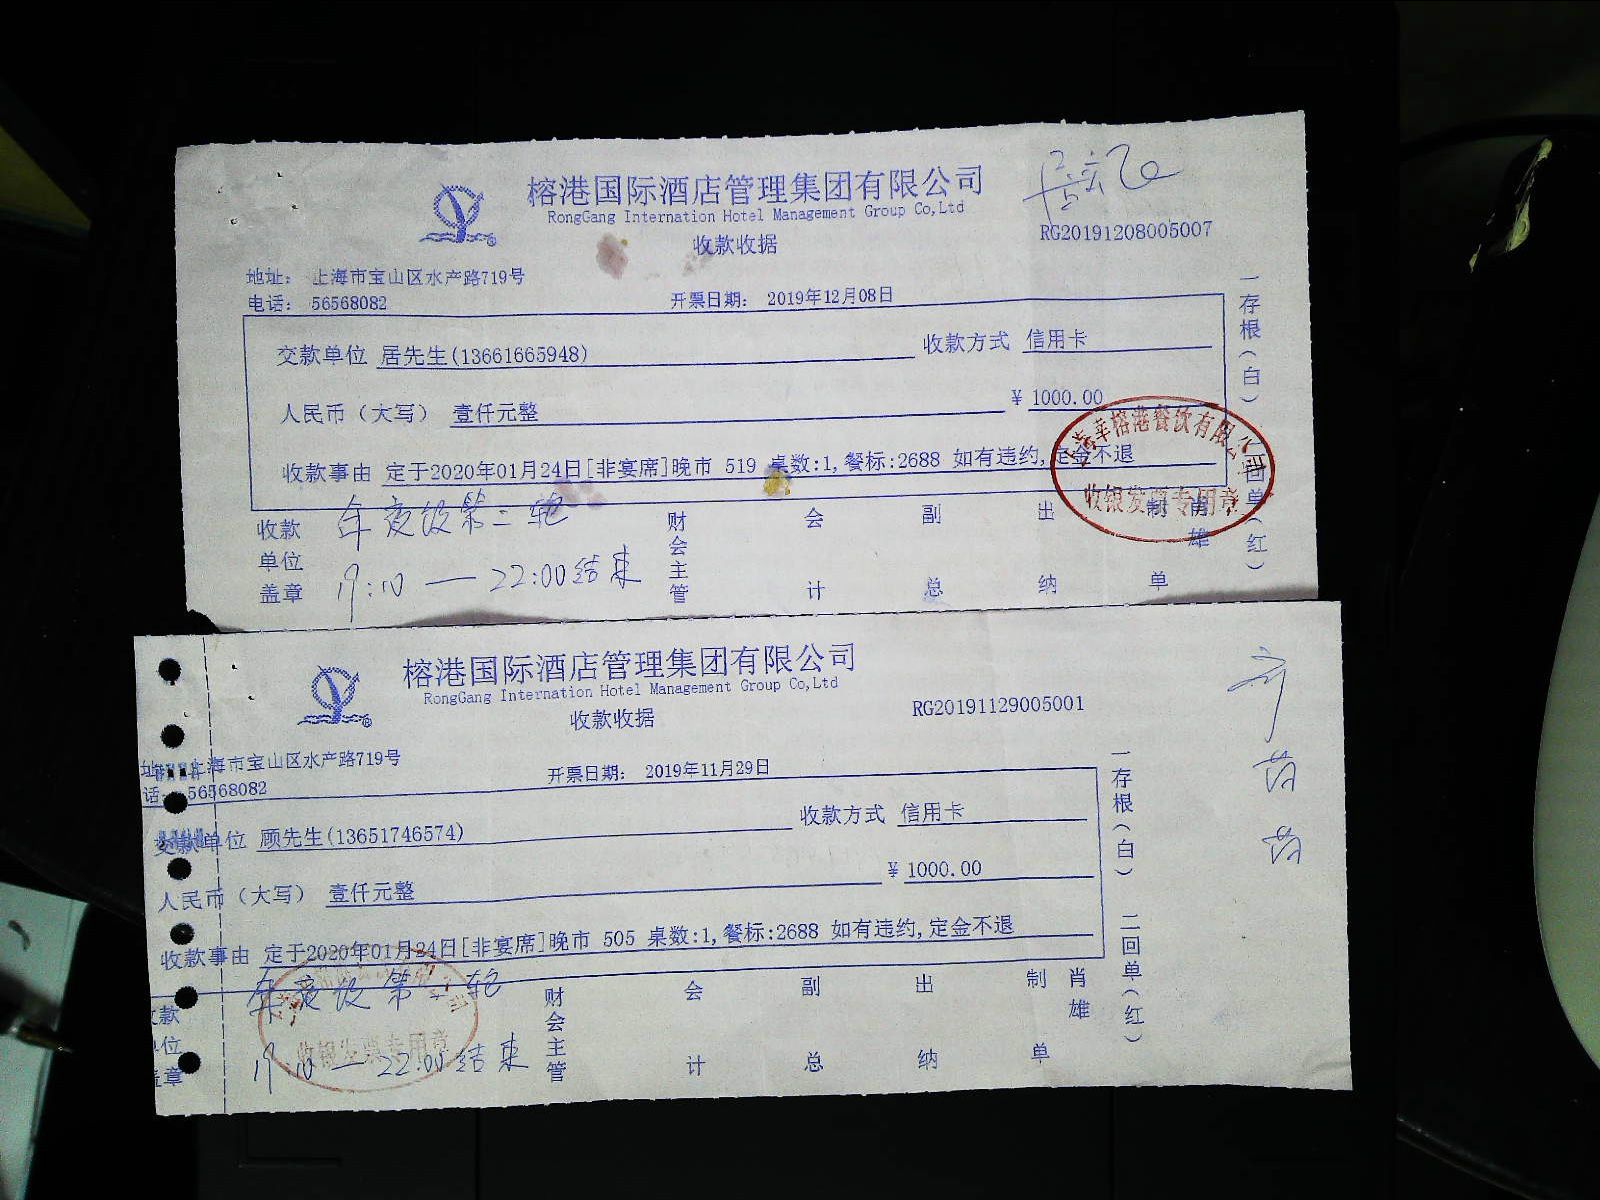 榕港国际酒店管理集团有限公司
RongGang Internation Hotel Management Group Co,Ltd
收款收据
RG20191208005007
地址： 上海市宝山区水产路719号
电话： 56568082
开票日期： 2019年12月08日
交款单位 居先生(13661665948)
收款方式 信用卡
人民币（大写） 壹仟元整
￥ 1000.00
收款事由 定于2020年01月24日[非宴席]晚市 519 桌数:1,餐标:2688 如有违约,定金不退
榕港餐饮有限公司
收银发票专用章
年夜饭第二轮
19:10 — 22:00结束
收款单位盖章
财会主管
会计
副总
出纳
制单
肖雄
一存根（白）
二回单（红）
榕港国际酒店管理集团有限公司
RongGang Internation Hotel Management Group Co,Ltd
收款收据
RG20191129005001
址： 上海市宝山区水产路719号
话： 56568082
开票日期： 2019年11月29日
交款单位 顾先生(13651746574)
收款方式 信用卡
人民币（大写） 壹仟元整
￥ 1000.00
收款事由 定于2020年01月24日[非宴席]晚市 505 桌数:1,餐标:2688 如有违约,定金不退
年夜饭第二轮
19:10 — 22:00结束
收银发票专用章
款
位
盖章
财会主管
会计
副总
出纳
制单
肖雄
一存根（白）
二回单（红）